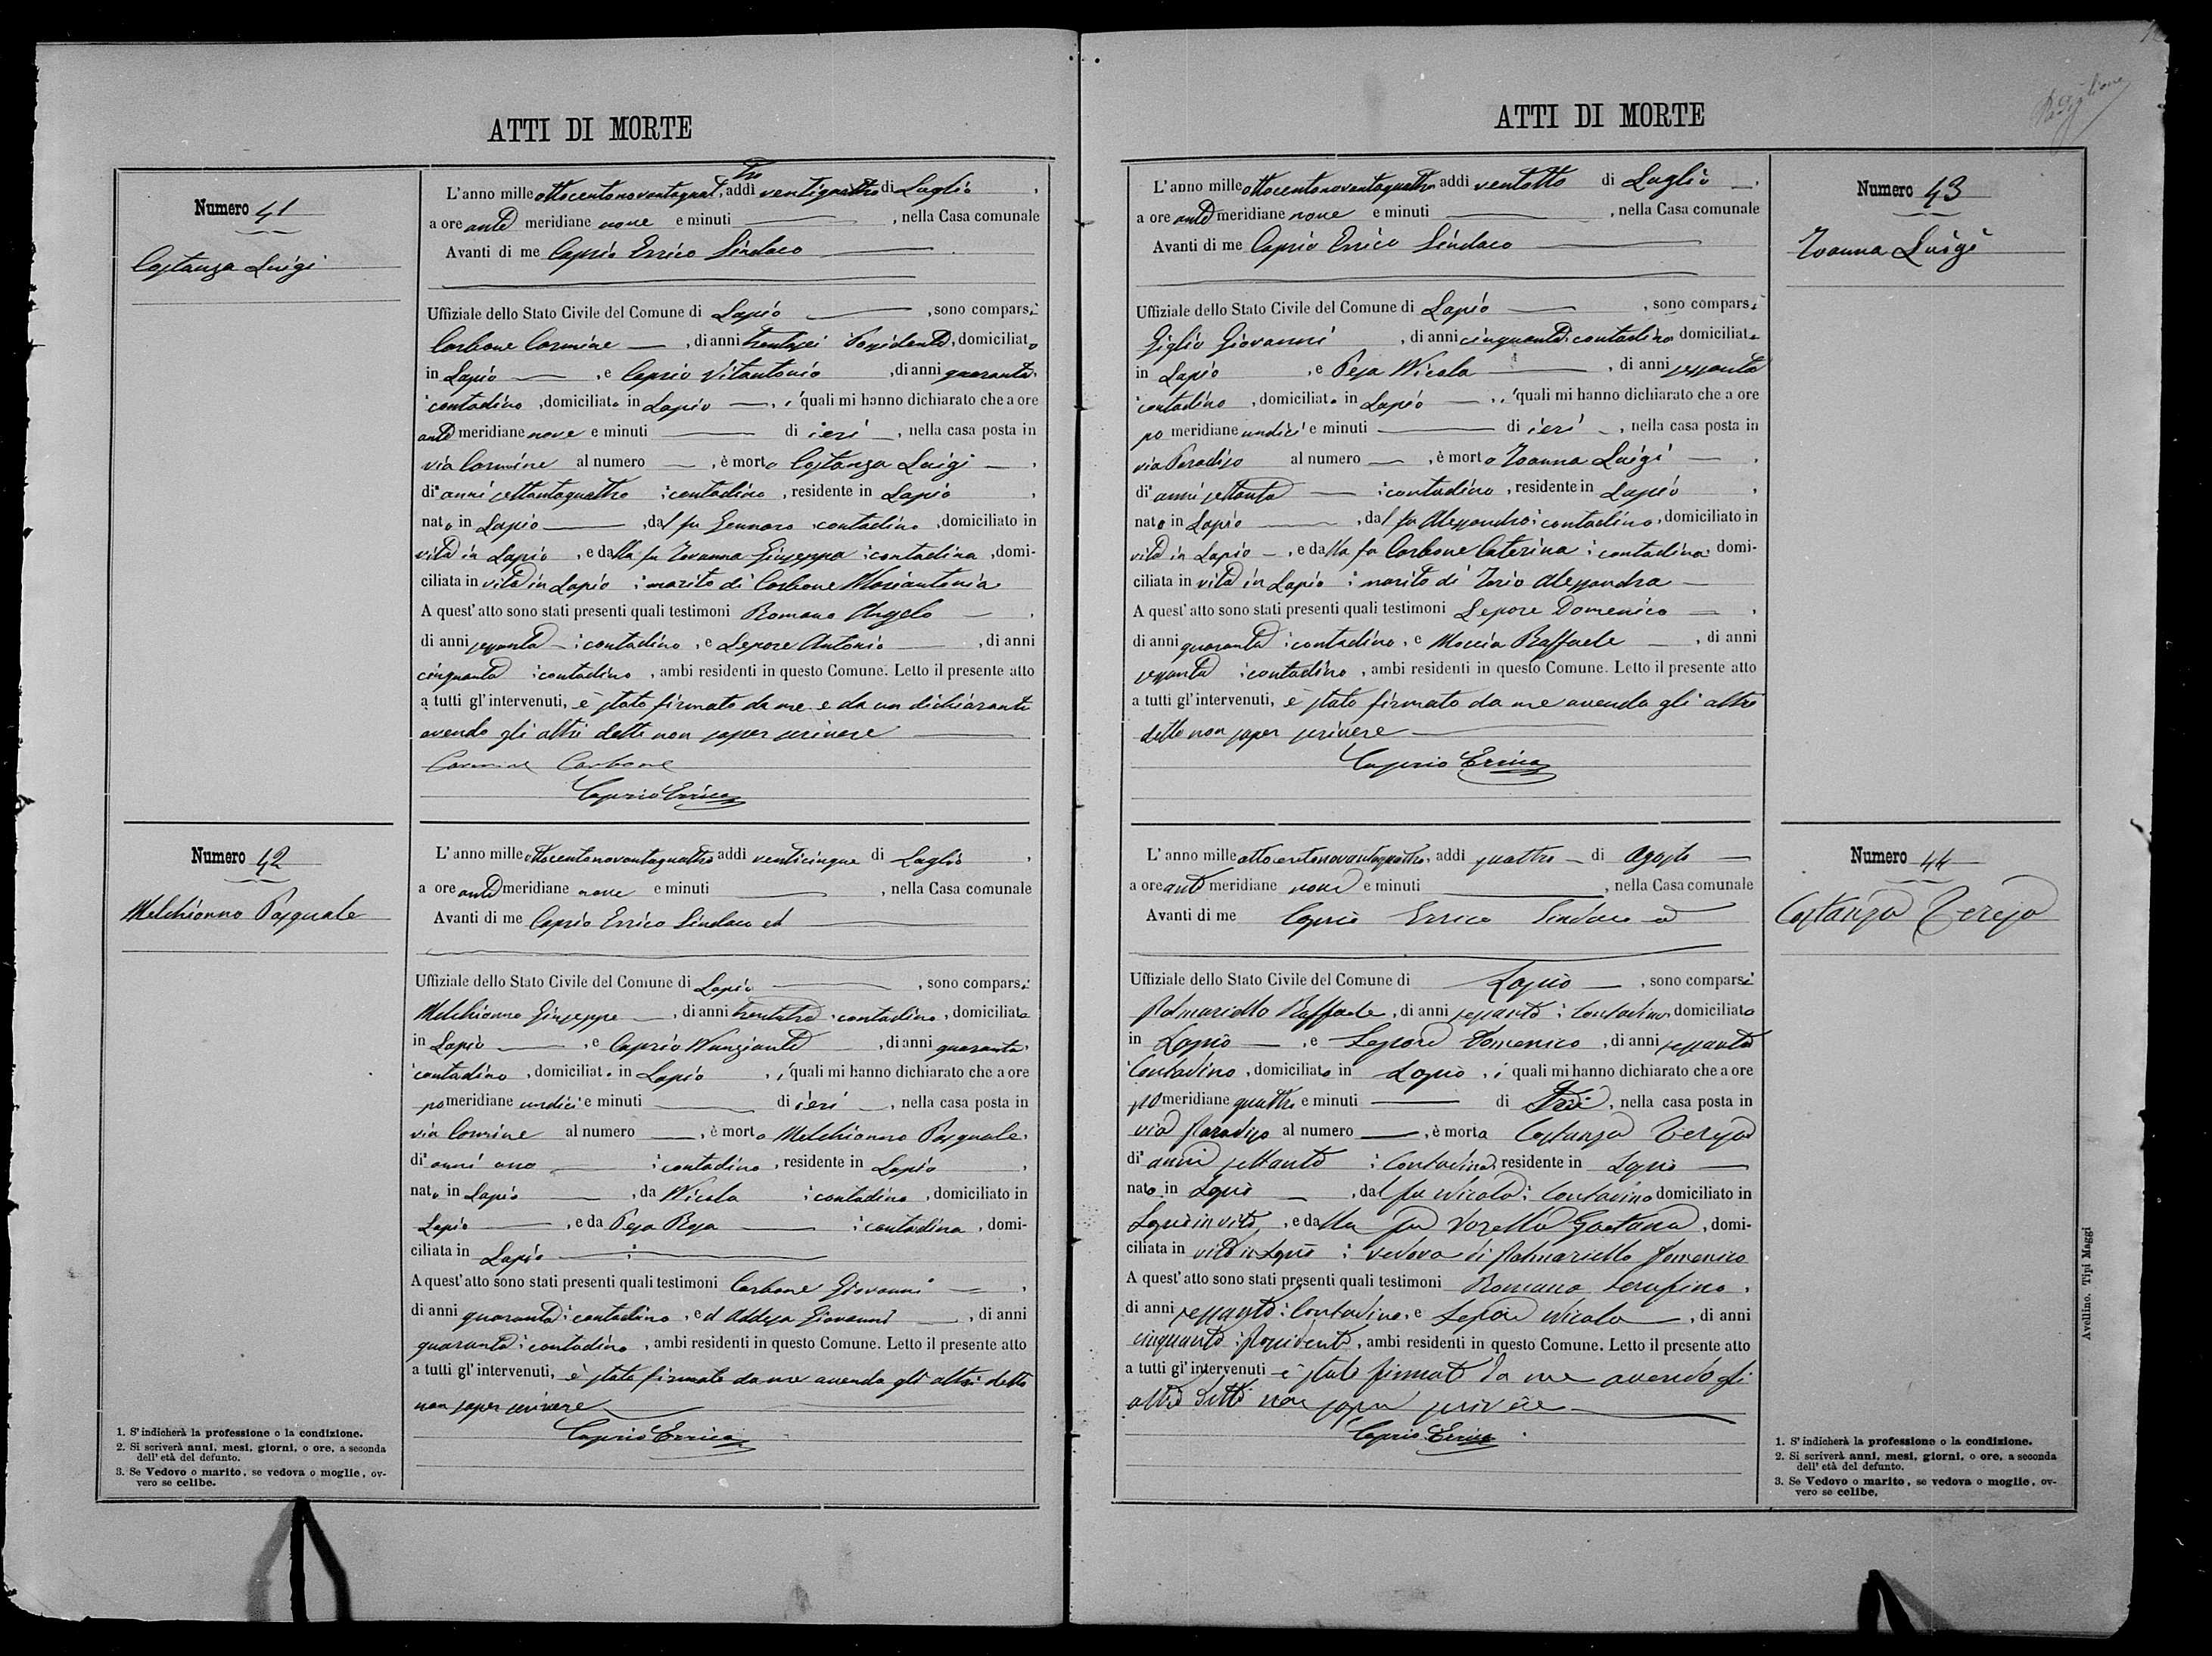 ATTI DI MORTE
Numero 41
Costanza Luigi
L'anno mille ottocentonovantaquattro, addì ventiquattro di Luglio,
a ore ante meridiane nove e minuti —, nella Casa comunale
Avanti di me Caprio Errico Sindaco
Uffiziale dello Stato Civile del Comune di Lapio, sono comparsi
Carbone Carmine —, di anni trentasei Possidente, domiciliato
in Lapio —, e Caprio Vitantonio, di anni quaranta
contadino, domiciliato in Lapio —, i quali mi hanno dichiarato che a ore
ante meridiane nove e minuti — di ieri —, nella casa posta in
via Carmine al numero —, è morto Costanza Luigi —,
di anni settantaquattro contadino, residente in Lapio,
nato in Lapio —, dal fu Gennaro contadino, domiciliato in
vita in Lapio, e dalla fu Iovanna Giuseppa contadina, domi-
ciliata in vita in Lapio marito di Carbone Mariantonia
A quest'atto sono stati presenti quali testimoni Romano Angelo —,
di anni sessanta — contadino, e Lepore Antonio —, di anni
cinquanta contadino, ambi residenti in questo Comune. Letto il presente atto
a tutti gl'intervenuti, è stato firmato da me e da un dichiarante
avendo gli altri detto non saper scrivere
Carmine Carbone
Caprio Errico
Numero 42
Melchionno Pasquale
L'anno mille ottocentonovantaquattro addì venticinque di Luglio,
a ore ante meridiane nove e minuti —, nella Casa comunale
Avanti di me Caprio Errico Sindaco ed
Uffiziale dello Stato Civile del Comune di Lapio —, sono comparsi
Melchionno Giuseppe —, di anni trentatre contadino, domiciliato
in Lapio —, e Caprio Nunziante, di anni quaranta
contadino, domiciliato in Lapio, i quali mi hanno dichiarato che a ore
pomeridiane undici e minuti — di ieri —, nella casa posta in
via Carmine al numero —, è morto Melchionno Pasquale,
di anni uno — contadino, residente in Lapio,
nato in Lapio —, da Nicola contadino, domiciliato in
Lapio —, e da Pesa Rosa — contadina, domi-
ciliata in Lapio —
A quest'atto sono stati presenti quali testimoni Carbone Giovanni —,
di anni quaranta contadino, ed Addesa Giovanni —, di anni
quaranta contadino, ambi residenti in questo Comune. Letto il presente atto
a tutti gl'intervenuti, è stato firmato da me avendo gli altri detto
non saper scrivere
Caprio Errico
1. S'indicherà la professione o la condizione.
2. Si scriverà anni, mesi, giorni, o ore, a seconda
dell'età del defunto.
3. Se Vedovo o marito, se vedova o moglie, ov-
vero se celibe.
ATTI DI MORTE
Numero 43
Ioanna Luigi
L'anno mille ottocentonovantaquattro addì ventotto di Luglio —,
a ore ante meridiane nove e minuti —, nella Casa comunale
Avanti di me Caprio Errico Sindaco
Uffiziale dello Stato Civile del Comune di Lapio —, sono comparsi
Giglio Giovanni, di anni cinquanta contadino domiciliato
in Lapio, e Pesa Nicola —, di anni sessanta
contadino, domiciliato in Lapio —, i quali mi hanno dichiarato che a ore
po meridiane undici e minuti — di ieri —, nella casa posta in
via Paradiso al numero —, è morto Ioanna Luigi —,
di anni settanta — contadino, residente in Lapio,
nato in Lapio —, dal fu Alessandro contadino, domiciliato in
vita in Lapio —, e dalla fu Carbone Caterina contadina domi-
ciliata in vita in Lapio marito di Iorio Alessandra —
A quest'atto sono stati presenti quali testimoni Lepore Domenico —,
di anni quaranta contadino, e Moccia Raffaele —, di anni
sessanta contadino, ambi residenti in questo Comune. Letto il presente atto
a tutti gl'intervenuti, è stato firmato da me avendo gli altri
detto non saper scrivere
Caprio Errico
Numero 44
Costanza Teresa
L'anno mille ottocentonovantaquattro, addì quattro — di Agosto —
a ore ante meridiane nove e minuti —, nella Casa comunale
Avanti di me Caprio Errico Sindaco ed
Uffiziale dello Stato Civile del Comune di Lapio —, sono comparsi
Palmariello Raffaele, di anni sessanta contadino domiciliato
in Lapio —, e Lepore Domenico, di anni sessanta
Contadino, domiciliato in Lapio, i quali mi hanno dichiarato che a ore
po meridiane quattro e minuti — di Ieri, nella casa posta in
via Paradiso al numero —, è morta Costanza Teresa
di anni settanta Contadina residente in Lapio —
nato in Lapio —, dal fu Nicola Contadino domiciliato in
Lapio in vita, e dalla fu Gaetana, domi-
ciliata in vita in Lapio vedova di Palmariello Domenico
A quest'atto sono stati presenti quali testimoni Romano Serafino,
di anni sessanta Contadino, e Lepore Nicola —, di anni
cinquanta Possidente, ambi residenti in questo Comune. Letto il presente atto
a tutti gl'intervenuti è stato firmato da me avendo gli
altri detto non saper scrivere
Caprio Errico
1. S'indicherà la professione o la condizione.
2. Si scriverà anni, mesi, giorni, o ore, a seconda
dell'età del defunto.
3. Se Vedovo o marito, se vedova o moglie, ov-
vero se celibe.
Avellino. Tipi Maggi